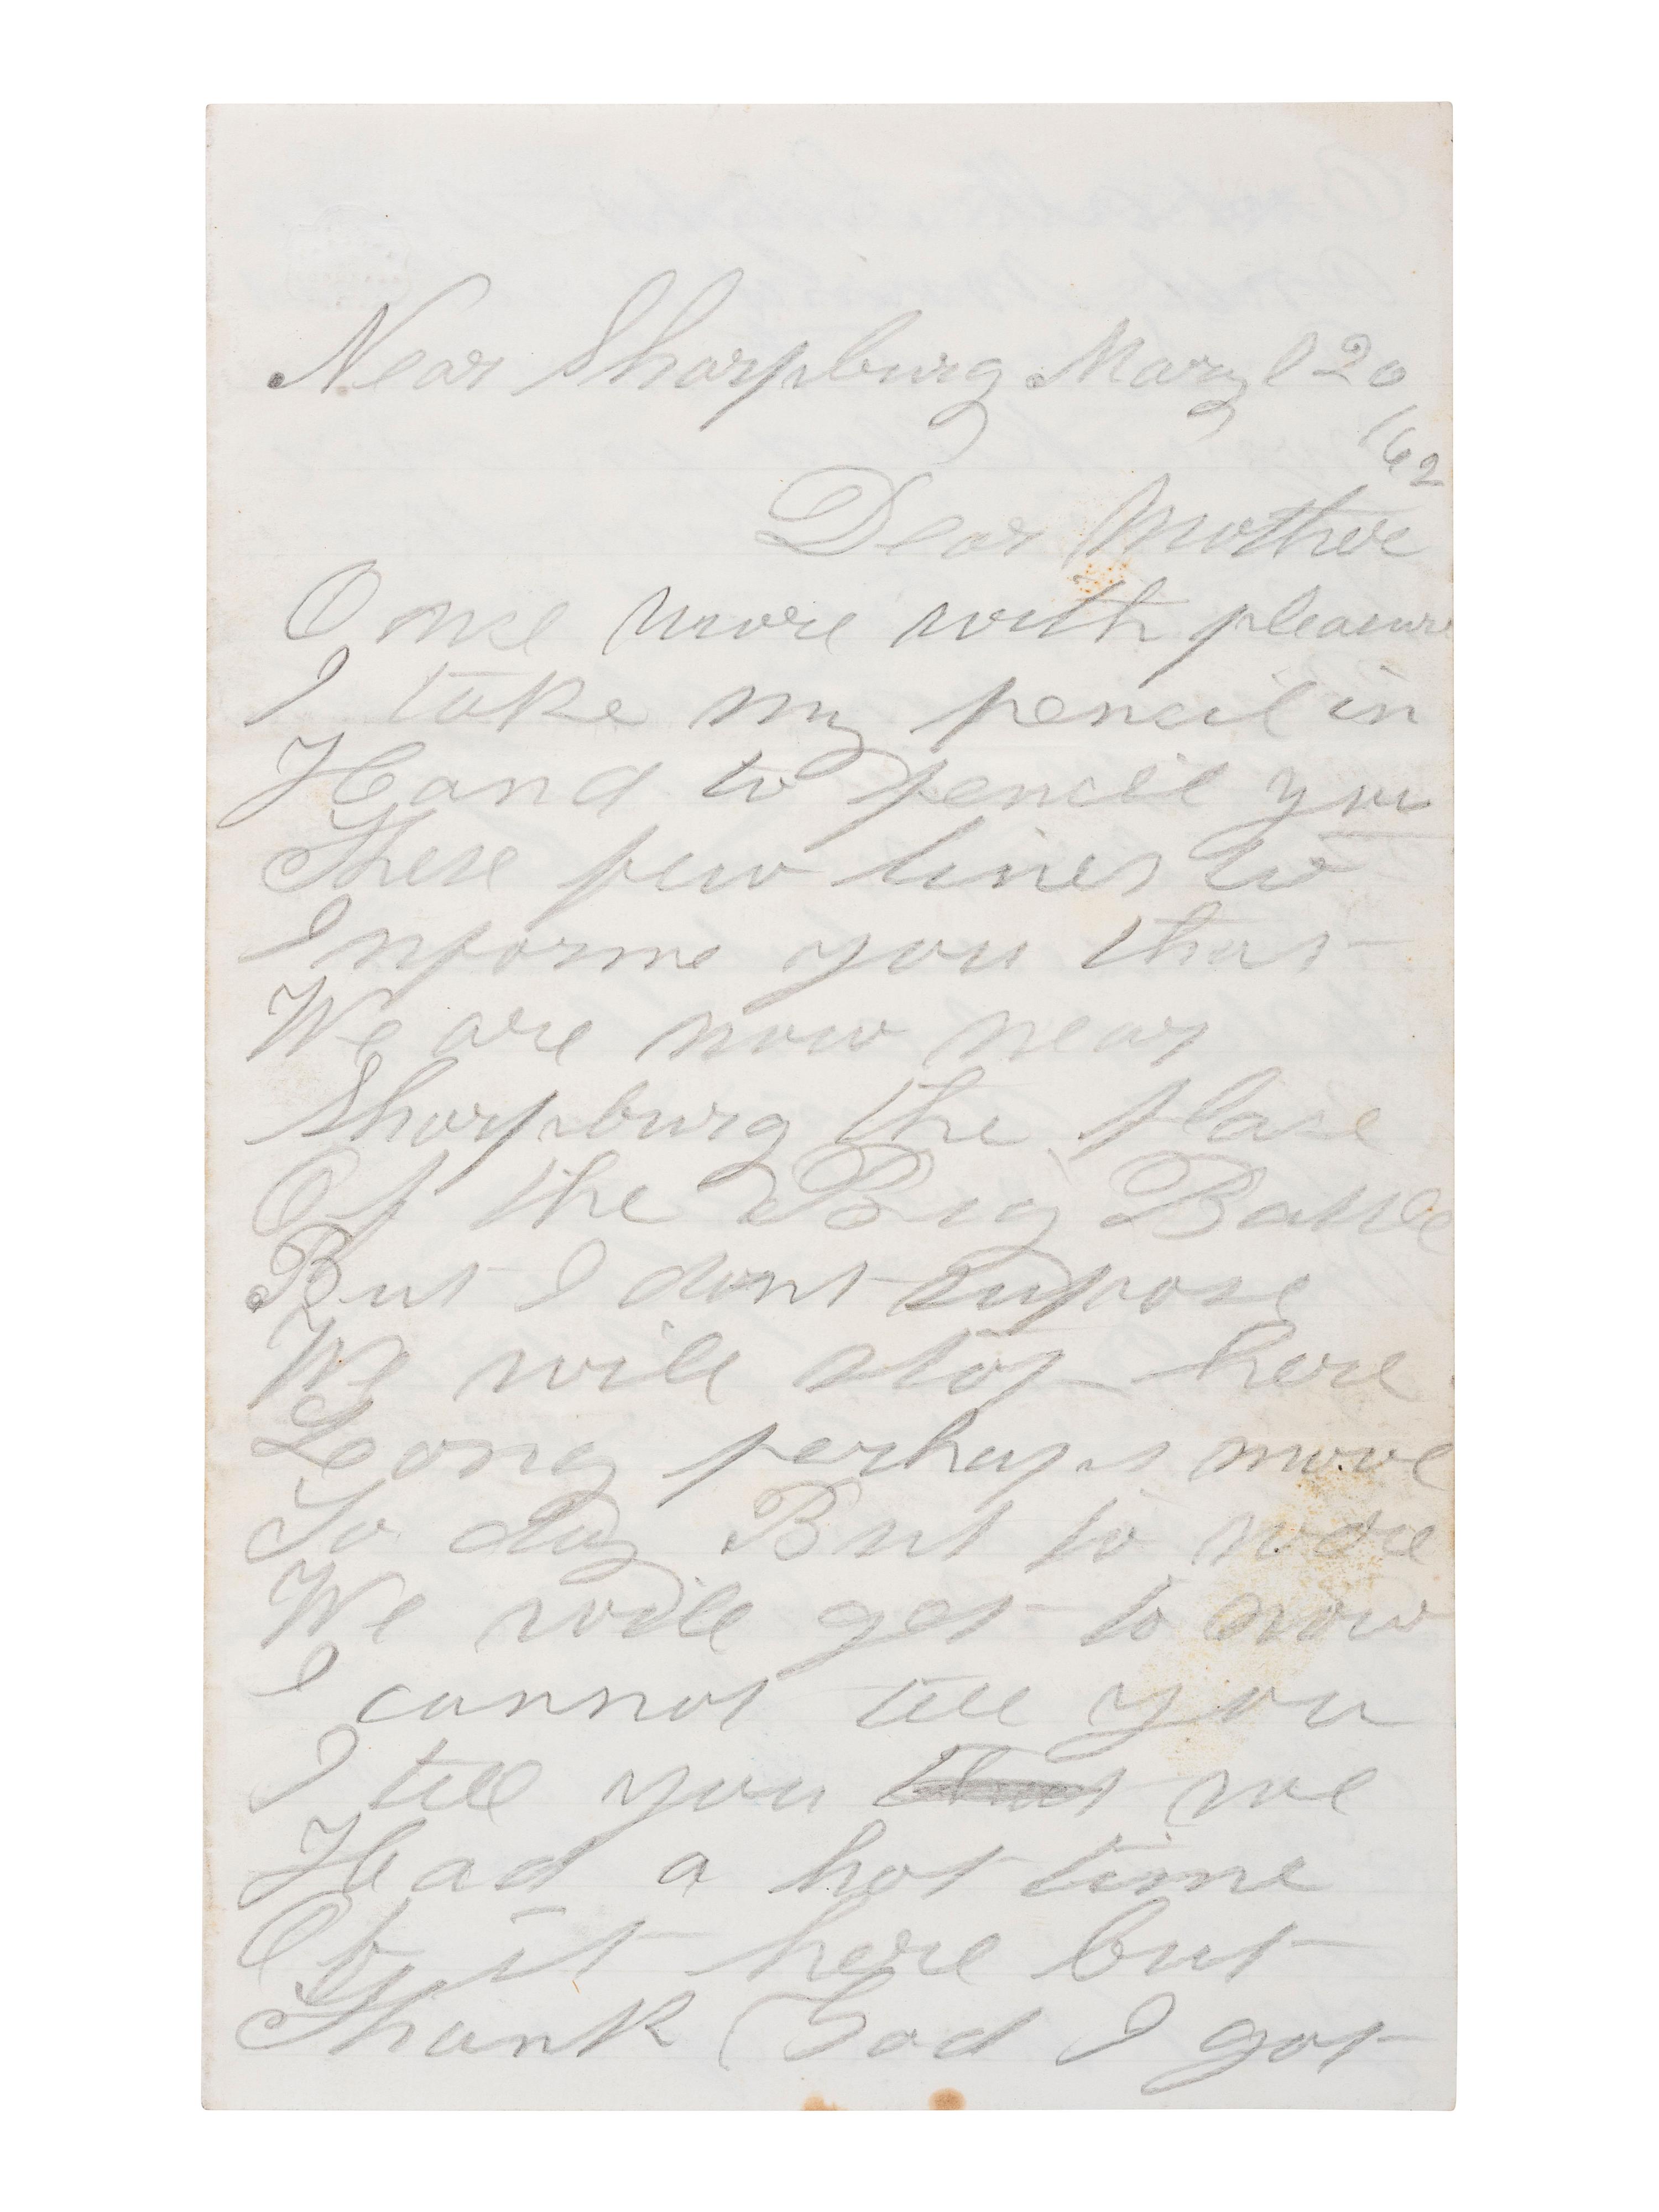 Near Sharpburg Maryl 20
/62
Dear Mother
Once more with pleasure
I take my pencil in
Hand to pencil you
These few lines to
Informe you that
We are now near
Sharpburg the plase
Of the Big Battle
But I dont supose
We will stop here
Leong perhaps move
To day But to
We will get to now
I cannot tell you
I tell you that we
Had a hot time
Of it here but
Thank God I got